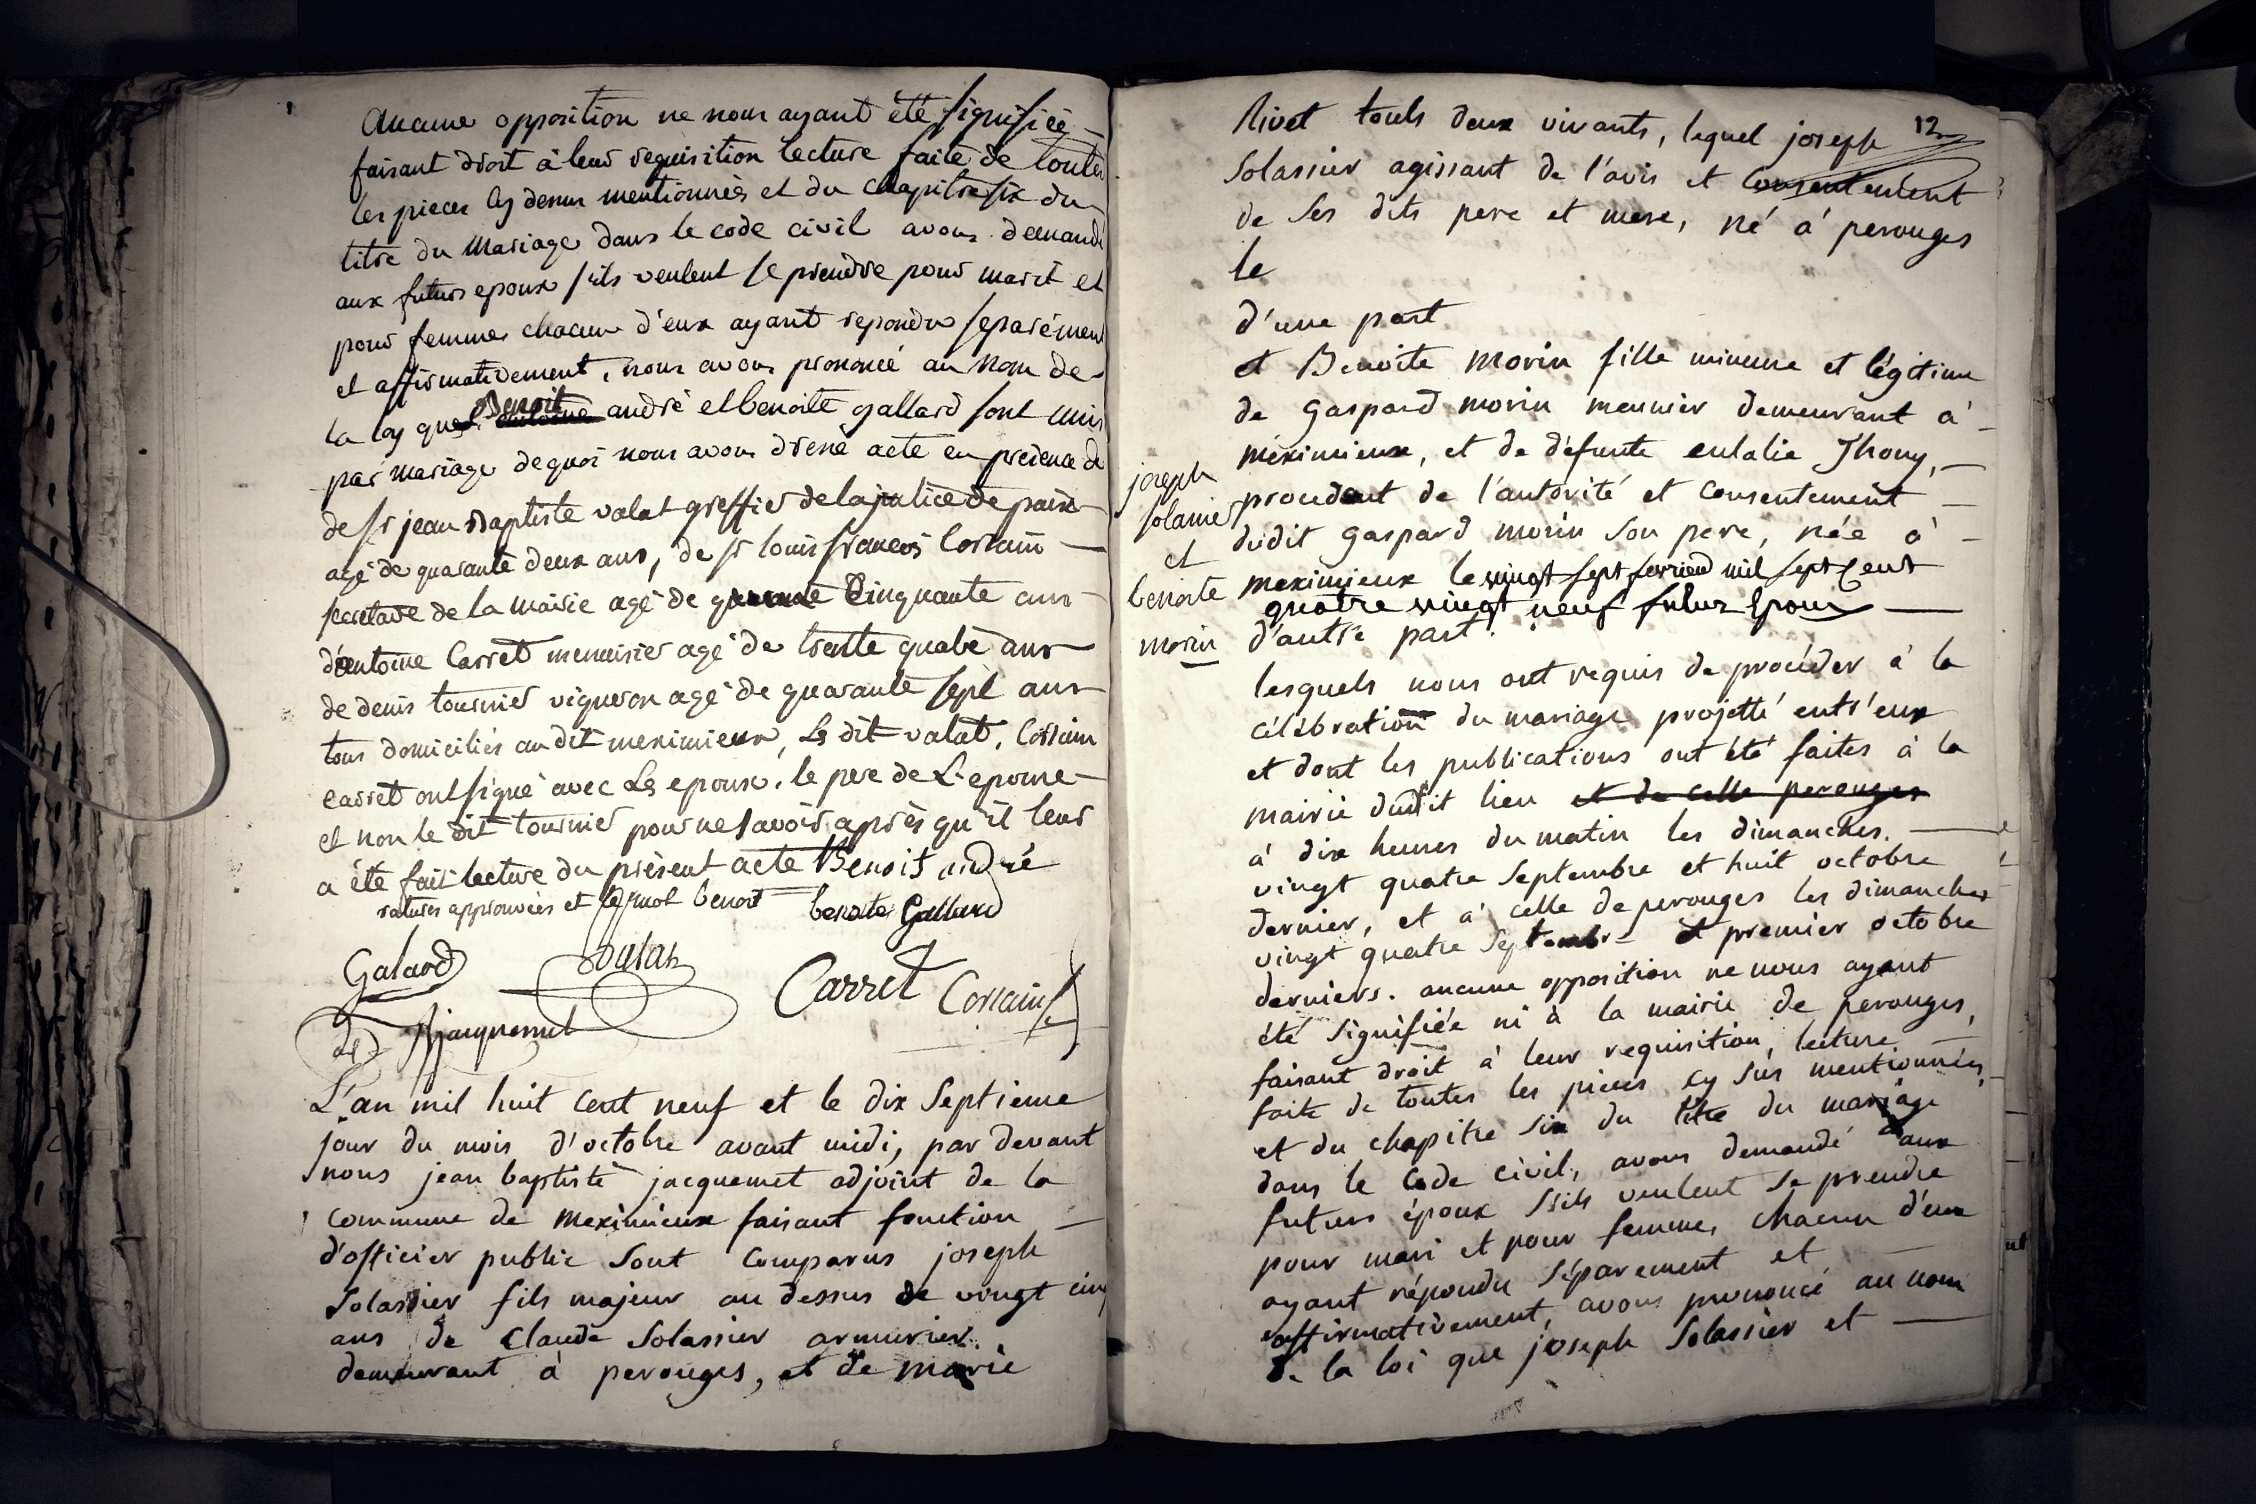 Aucune opposition ne nous ayant été signifiée
faisant droit à leur requisition lecture faite de toutes
les pieces cy dessus mentionnées et du chapitre six du
titre du Mariage dans le code civil avons demandé
aux futurs epoux s'ils veulent se prendre pour marit et
pour femme chacun d'eux ayant repondu separément
et affirmativement, nous avons prononcé au nom de
la loy que Benoit andré et benoite gallard sont unis
par mariage de quoi nous avons dressé acte en présence de
de sr jean Baptiste valat greffier de la justice de paix
agé de quarante deux ans, de sr louis françois Corrain
secretaire de la mairie agé de cinquante ans
d'antoine Carret menuisier agé de trente quatre ans
de denis tournier vigneron agé de quarante sept ans
tous domiciliés au dit meximieux, Le dit valat, Corrain
carret ont signé avec Les epoux, le pere de L'epouse
et non le dit tournier pour ne savoir après qu'il leur
a été fait lecture du présent acte Benoit andré
ratures approuvées et le mot benoit benoite Gallard
Galard valat Carret Corrain
adj Jacquemet
L'an mil huit cent neuf et le dix Septieme
jour du mois d'octobre avant midi, par devant
nous jean baptiste jacquemet adjoint de la
commune de meximieux faisant fonction
d'officier public Sont Comparus joseph
Solassier fils majeur au dessus de vingt cinq
ans de Claude Solassier armurier
demeurant à perouges, et de marie
12
Rivet touts deux vivants, lequel joseph
Solassier agissant de l'avis et Consentement
de Ses dits pere et mere, né à perouges
le
d'une part
et Benoite morin fille mineure et légitime
de gaspard morin meunier demeurant à
méximieux, et de défunte eulalie Thony,
procedant de l'autorité et consentement
dudit gaspard morin Son pere, née à
meximieux le vingt sept fevrier mil sept Cent
quatre vingt neuf futur Epoux
d'autre part.
joseph
solassier
et
benoite
morin
lesquels nous ont requis de procéder à la
célébration du mariage projetté entr'eux
et dont les publications ont été faites à la
mairie dudit lieu et de celle perouges
à dix heures du matin les dimanches
vingt quatre Septembre et huit octobre
dernier, et à celle de perouges les dimanches
vingt quatre Septembre et premier octobre
derniers. aucune opposition ne nous ayant
été Signifiée ni à la mairie de perouges,
faisant droit à leur requisition, lecture
faite de toutes les pieces cy Sus mentionnées,
et du chapitre Six du titre du mariage
dans le Code civil, avons demandé aux
futurs époux S'ils veulent Se prendre
pour mari et pour femme, chacun d'eux
ayant répondu Séparement et
affirmativement, avons prononcé au nom
de la loi que joseph Solassier et